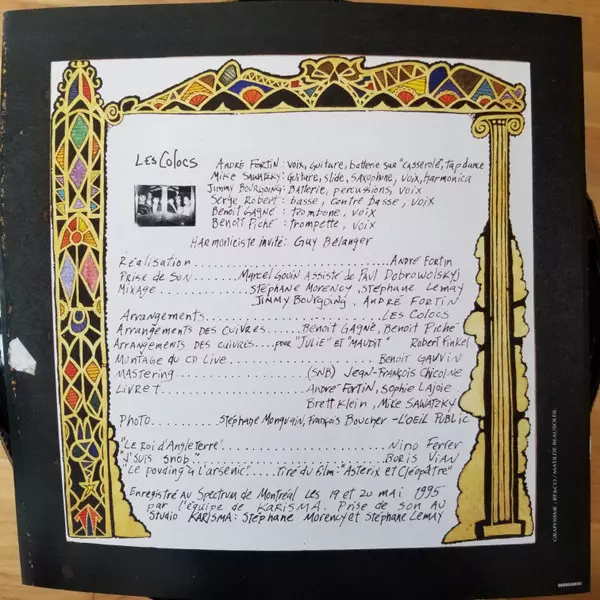 LES COLOCS
ANDRÉ FORTIN : voix, guitare, batterie sur "casserole", tap dance
MIKE SAWATZKY : Guitare, slide, saxophone, voix, Harmonica
JIMMY BOURGOING : Batterie, percussions, voix
Serge Robert : basse, contre basse, voix
Benoit Gagné : trombone, voix
Benoit Piché : trompette, voix
Harmoniciste invité : Guy Bélanger
Réalisation.......................ANDRÉ FORTIN
Prise de Son.......Marcel Gouin Assisté de Paul Dobrowolskyj
Mixage...............Stéphane Morency, Stéphane Lemay
Jimmy Bourgoing, André Fortin
Arrangements.......................LES COLOCS
Arrangements des cuivres......Benoit Gagné, Benoit Piché
Arrangements des cuivres....pour "Julie" et "Maudit" Robert Finkel
Montage du CD Live..................Benoit Gauvin
Mastering...................(SNB) Jean-François Chicoine
Livret....................André Fortin, Sophie Lajoie
Brett Klein, Mike Sawatzky
Photo.......Stéphane Monguain, François Boucher - L'OEIL PUBLIC
"Le Roi d'Angleterre".......................Nino Ferrer
"J'suis Snob"........................Boris Vian
"Le pouding à l'arsenic".....Tiré du film : "Asterix et Cléopâtre"
Enregistré au Spectrum de Montréal les 19 et 20 mai 1995
par l'équipe de Karisma. Prise de son au
Studio Karisma : Stéphane Morency et Stéphane Lemay